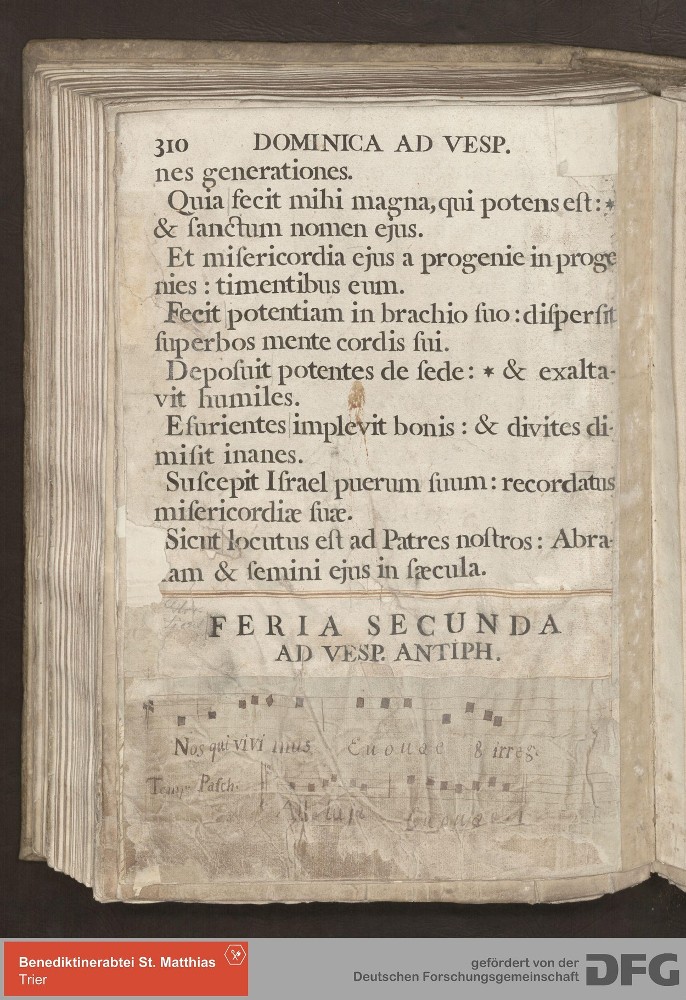 310 DOMINICA AD VESP.
nes generationes.
Quia fecit mihi magna, qui potens eſt: *
& ſanctum nomen ejus.
Et miſericordia ejus a progenie in proge
nies : timentibus eum.
Fecit potentiam in brachio ſuo : diſperſit
ſuperbos mente cordis ſui.
Depoſuit potentes de ſede : * & exalta-
vit humiles.
Eſurientes implevit bonis : & divites di-
miſit inanes.
Suſcepit Iſrael puerum ſuum : recordatus
miſericordiæ ſuæ.
Sicut locutus eſt ad Patres noſtros : Abra-
am & ſemini ejus in ſæcula.
FERIA SECUNDA
AD VESP. ANTIPH.
Nos qui vivimus Euouae 8 irreg.
Temp. Paſch.
Benediktinerabtei St. Matthias
Trier
gefördert von der
Deutschen Forschungsgemeinschaft DFG